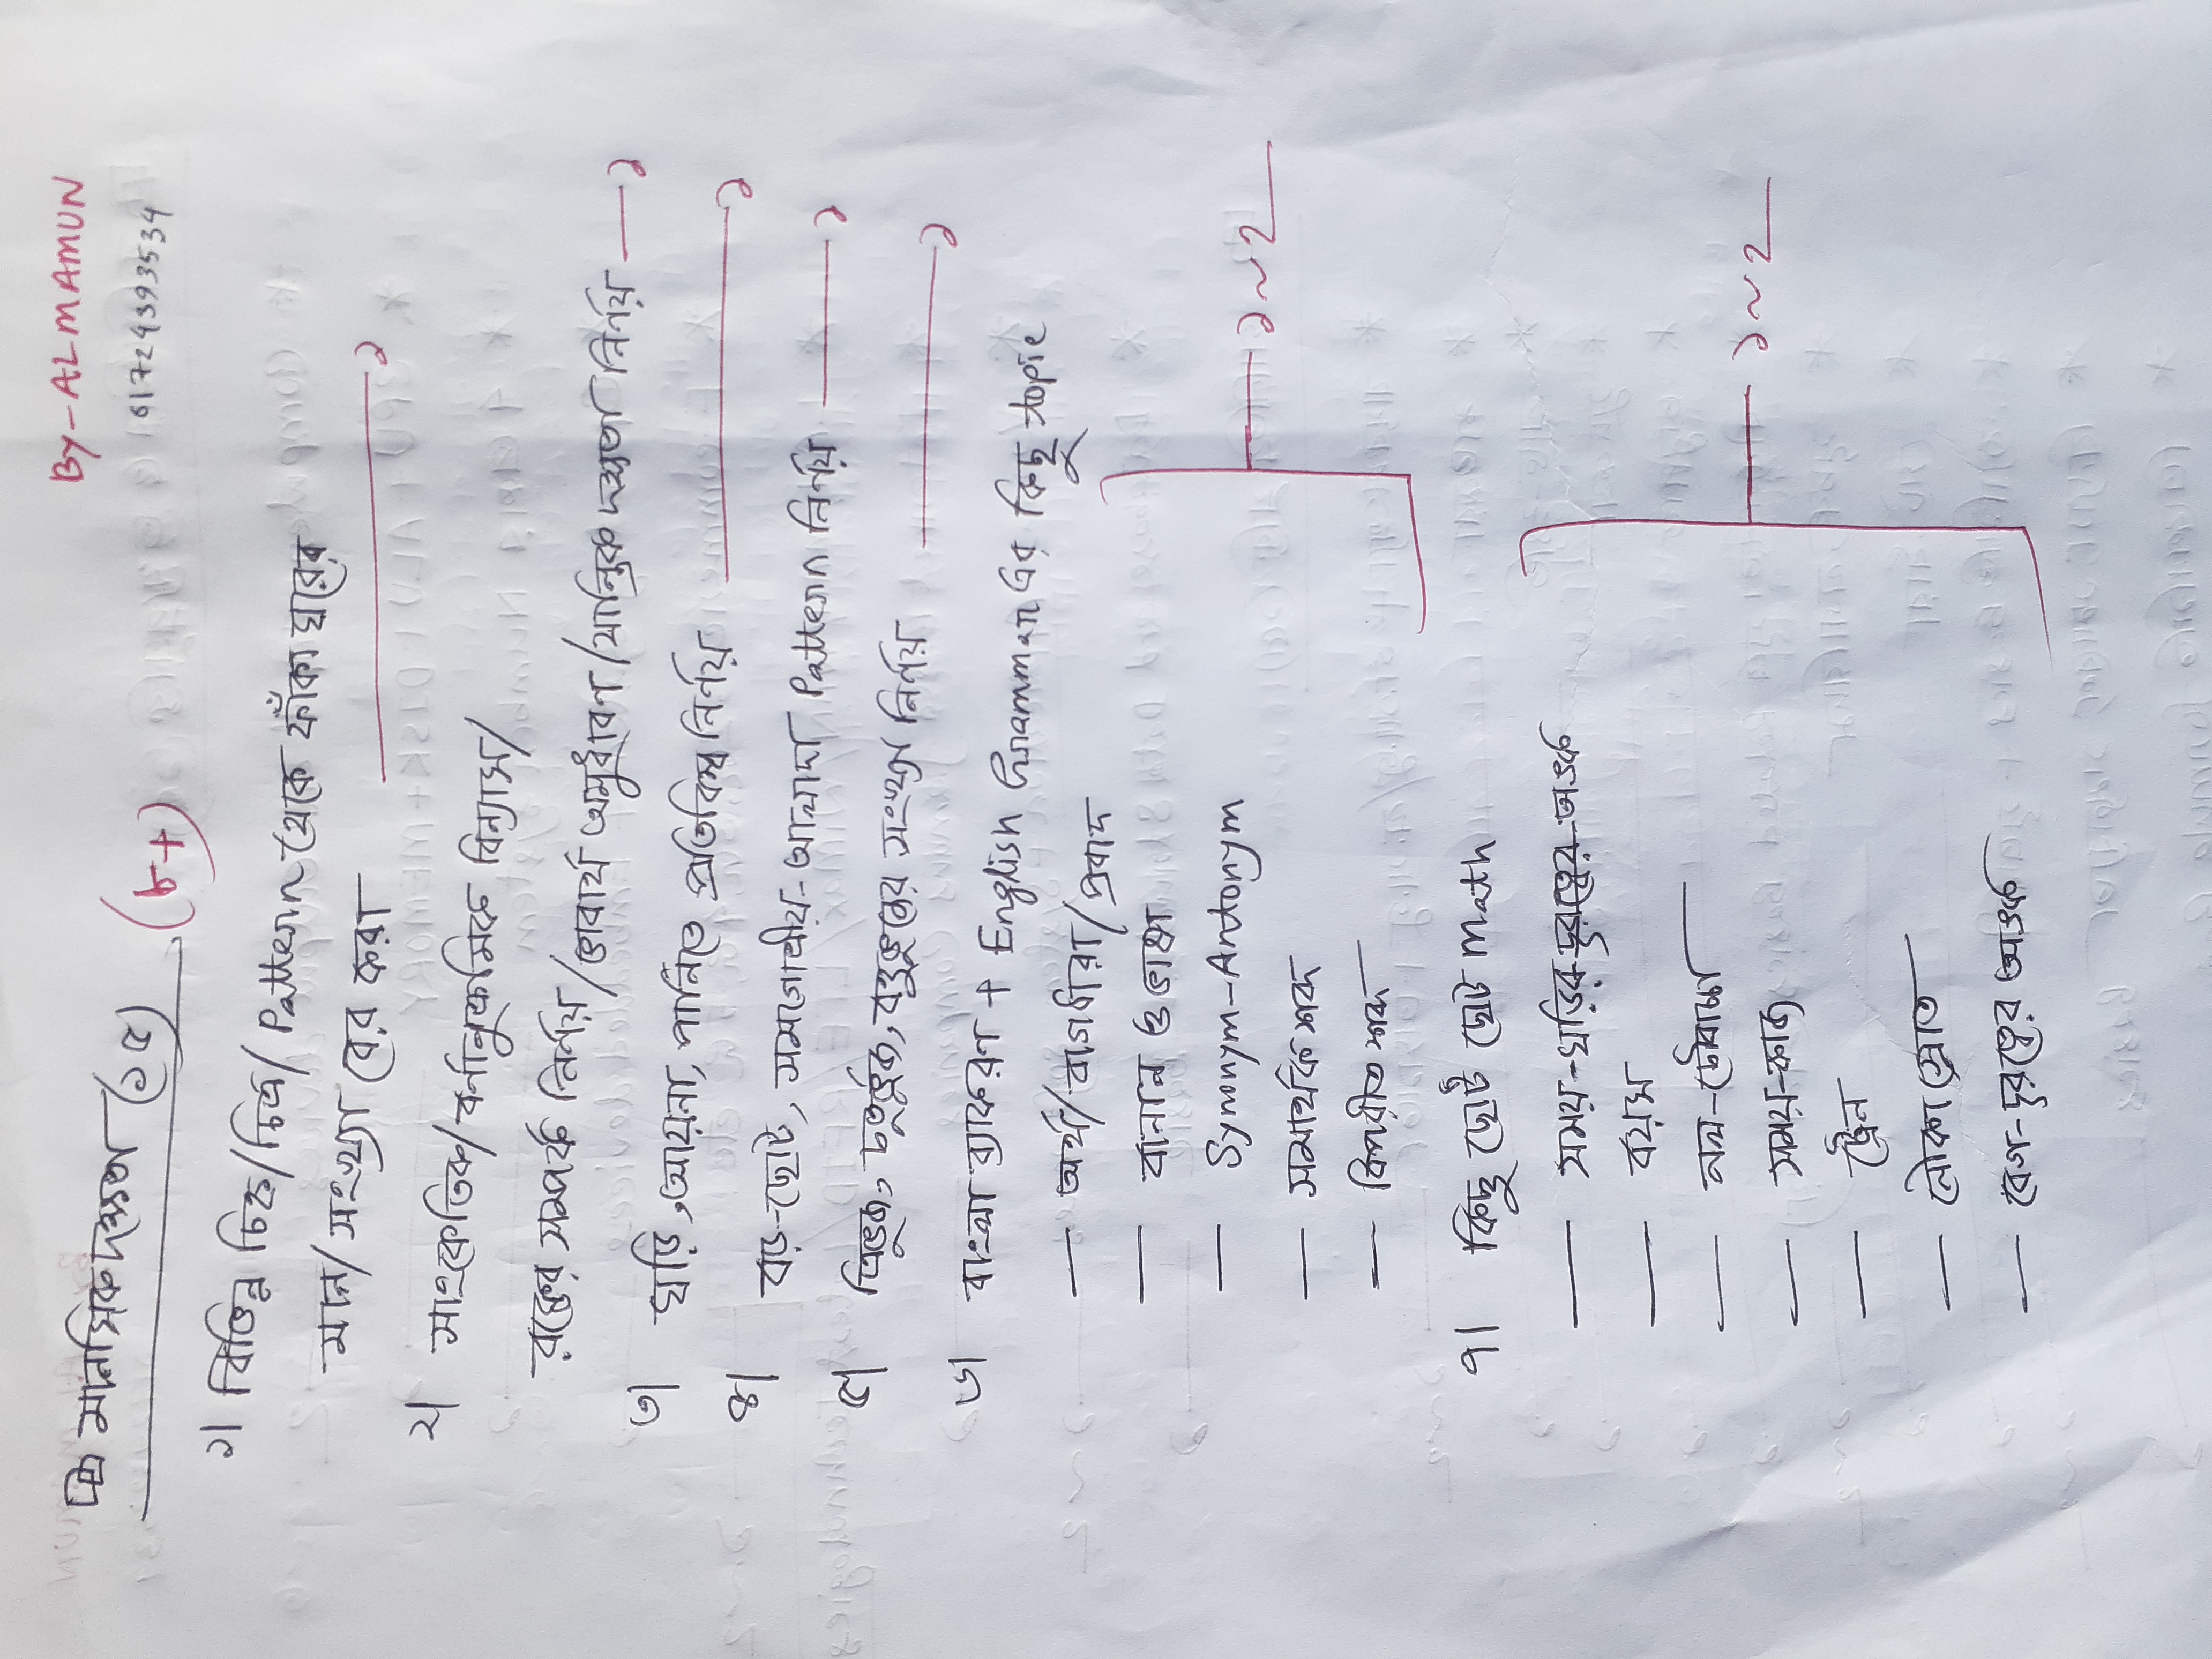 By-ALMAMUN
01724393534
মানসিক দক্ষতা (১৫) (৮+)
১। বিভিন্ন চিহ্ন/চিত্র/Pattern থেকে ফাঁকা ঘরের
মান/সংখ্যা বের করা —— ১
২। সাংকেতিক/বর্ণানুক্রমিক বিন্যাস/
রক্তের সম্পর্ক নির্ণয়/ভাবার্থ অনুধাবণ/যান্ত্রিক দক্ষতা নির্ণয় — ১
৩। ঘড়ি, আয়না, পানিতে প্রতিবিম্ব নির্ণয় —— ১
৪। বড়-ছোট, সমগোত্রীয়-আলাদা Pattern নির্ণয় —— ১
৫। ত্রিভুজ, চতুর্ভুজ, বহুভুজের সংখ্যা নির্ণয় —— ১
৬। বাংলা ব্যাকরণ + English Grammar এর কিছু topic
— অর্থ/বাগধারা/প্রবাদ
— বানান ও ভাষা
— Synonym-Antonym — ১~২
— সমার্থক শব্দ
— বিপরীত শব্দ
৭। কিছু ছোট ছোট math
— সময়-ঘড়ির অংক
— বয়স
— নল-চৌবাচ্চা
— সময়-কাজ — ১~২
— ট্রেন
— নৌকা স্রোত
— বেগ-দূরত্বের অংক